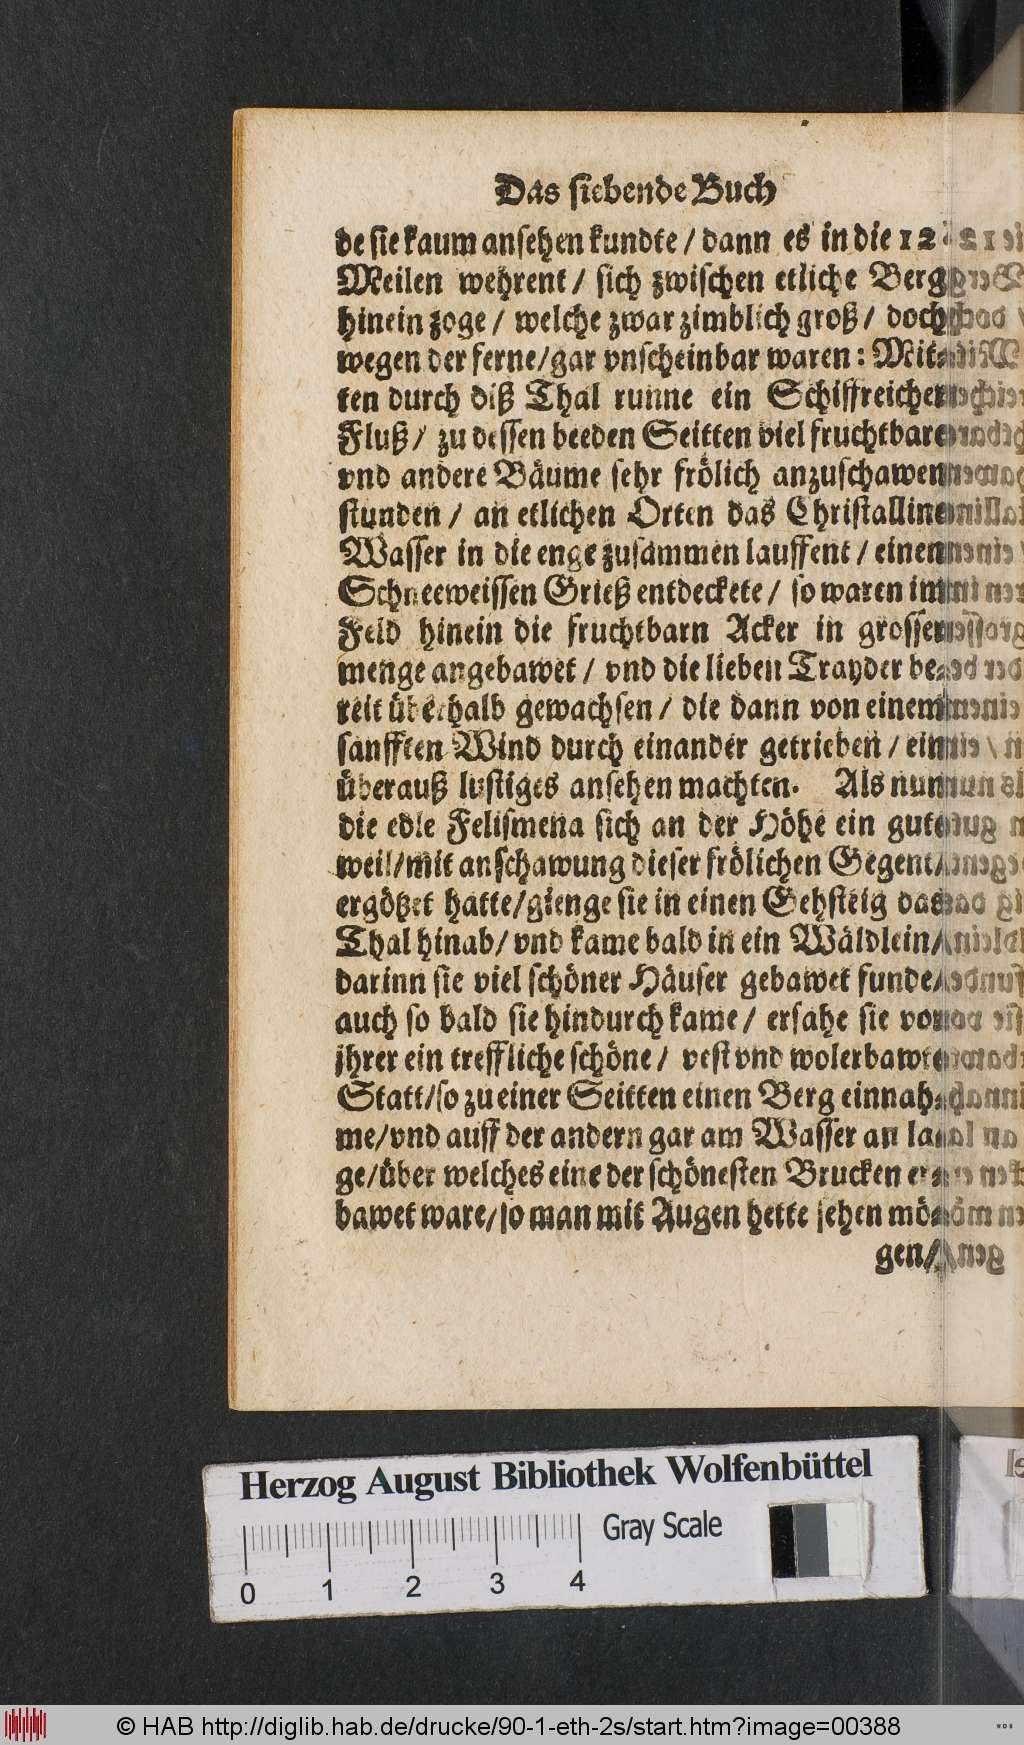 Das siebende Buch
de sie kaum ansehen kundte / dann es in die 12
Meilen wehrent / sich zwischen etliche Berg
hinein zoge / welche zwar zimblich groß / doch
wegen der ferne/gar vnscheinbar waren: Mit-
ten durch diß Thal runne ein Schiffreicher
Fluß / zu dessen beeden Seitten viel fruchtbare
vnd andere Bäume sehr frölich anzuschawen
stunden / an etlichen Orten das Christalline
Wasser in die enge zusammen lauffent / einen
Schneeweissen Grieß entdeckete / so waren im
Feld hinein die fruchtbarn Acker in grosser
menge angebawet / vnd die lieben Trayder be-
reit überhalb gewachsen / die dann von einem
sanfften Wind durch einander getrieben / ein
überauß lustiges ansehen machten. Als nun
die edle Felismena sich an der Höhe ein gute
weil/mit anschawung dieser frölichen Gegent/
ergötzet hatte/gienge sie in einen Gehsteig das
Thal hinab/ vnd kame bald in ein Wäldlein/
darinn sie viel schöner Häuser gebawet funde/
auch so bald sie hindurch kame / ersahe sie vor
jhrer ein treffliche schöne / vest vnd wolerbawte
Statt/so zu einer Seitten einen Berg einnah-
me/vnd auff der andern gar am Wasser an la-
ge/über welches eine der schönesten Brucken er-
bawet ware/so man mit Augen hette sehen mö-
gen/
Herzog August Bibliothek Wolfenbüttel
Gray Scale
0 1 2 3 4
© HAB http://diglib.hab.de/drucke/90-1-eth-2s/start.htm?image=00388